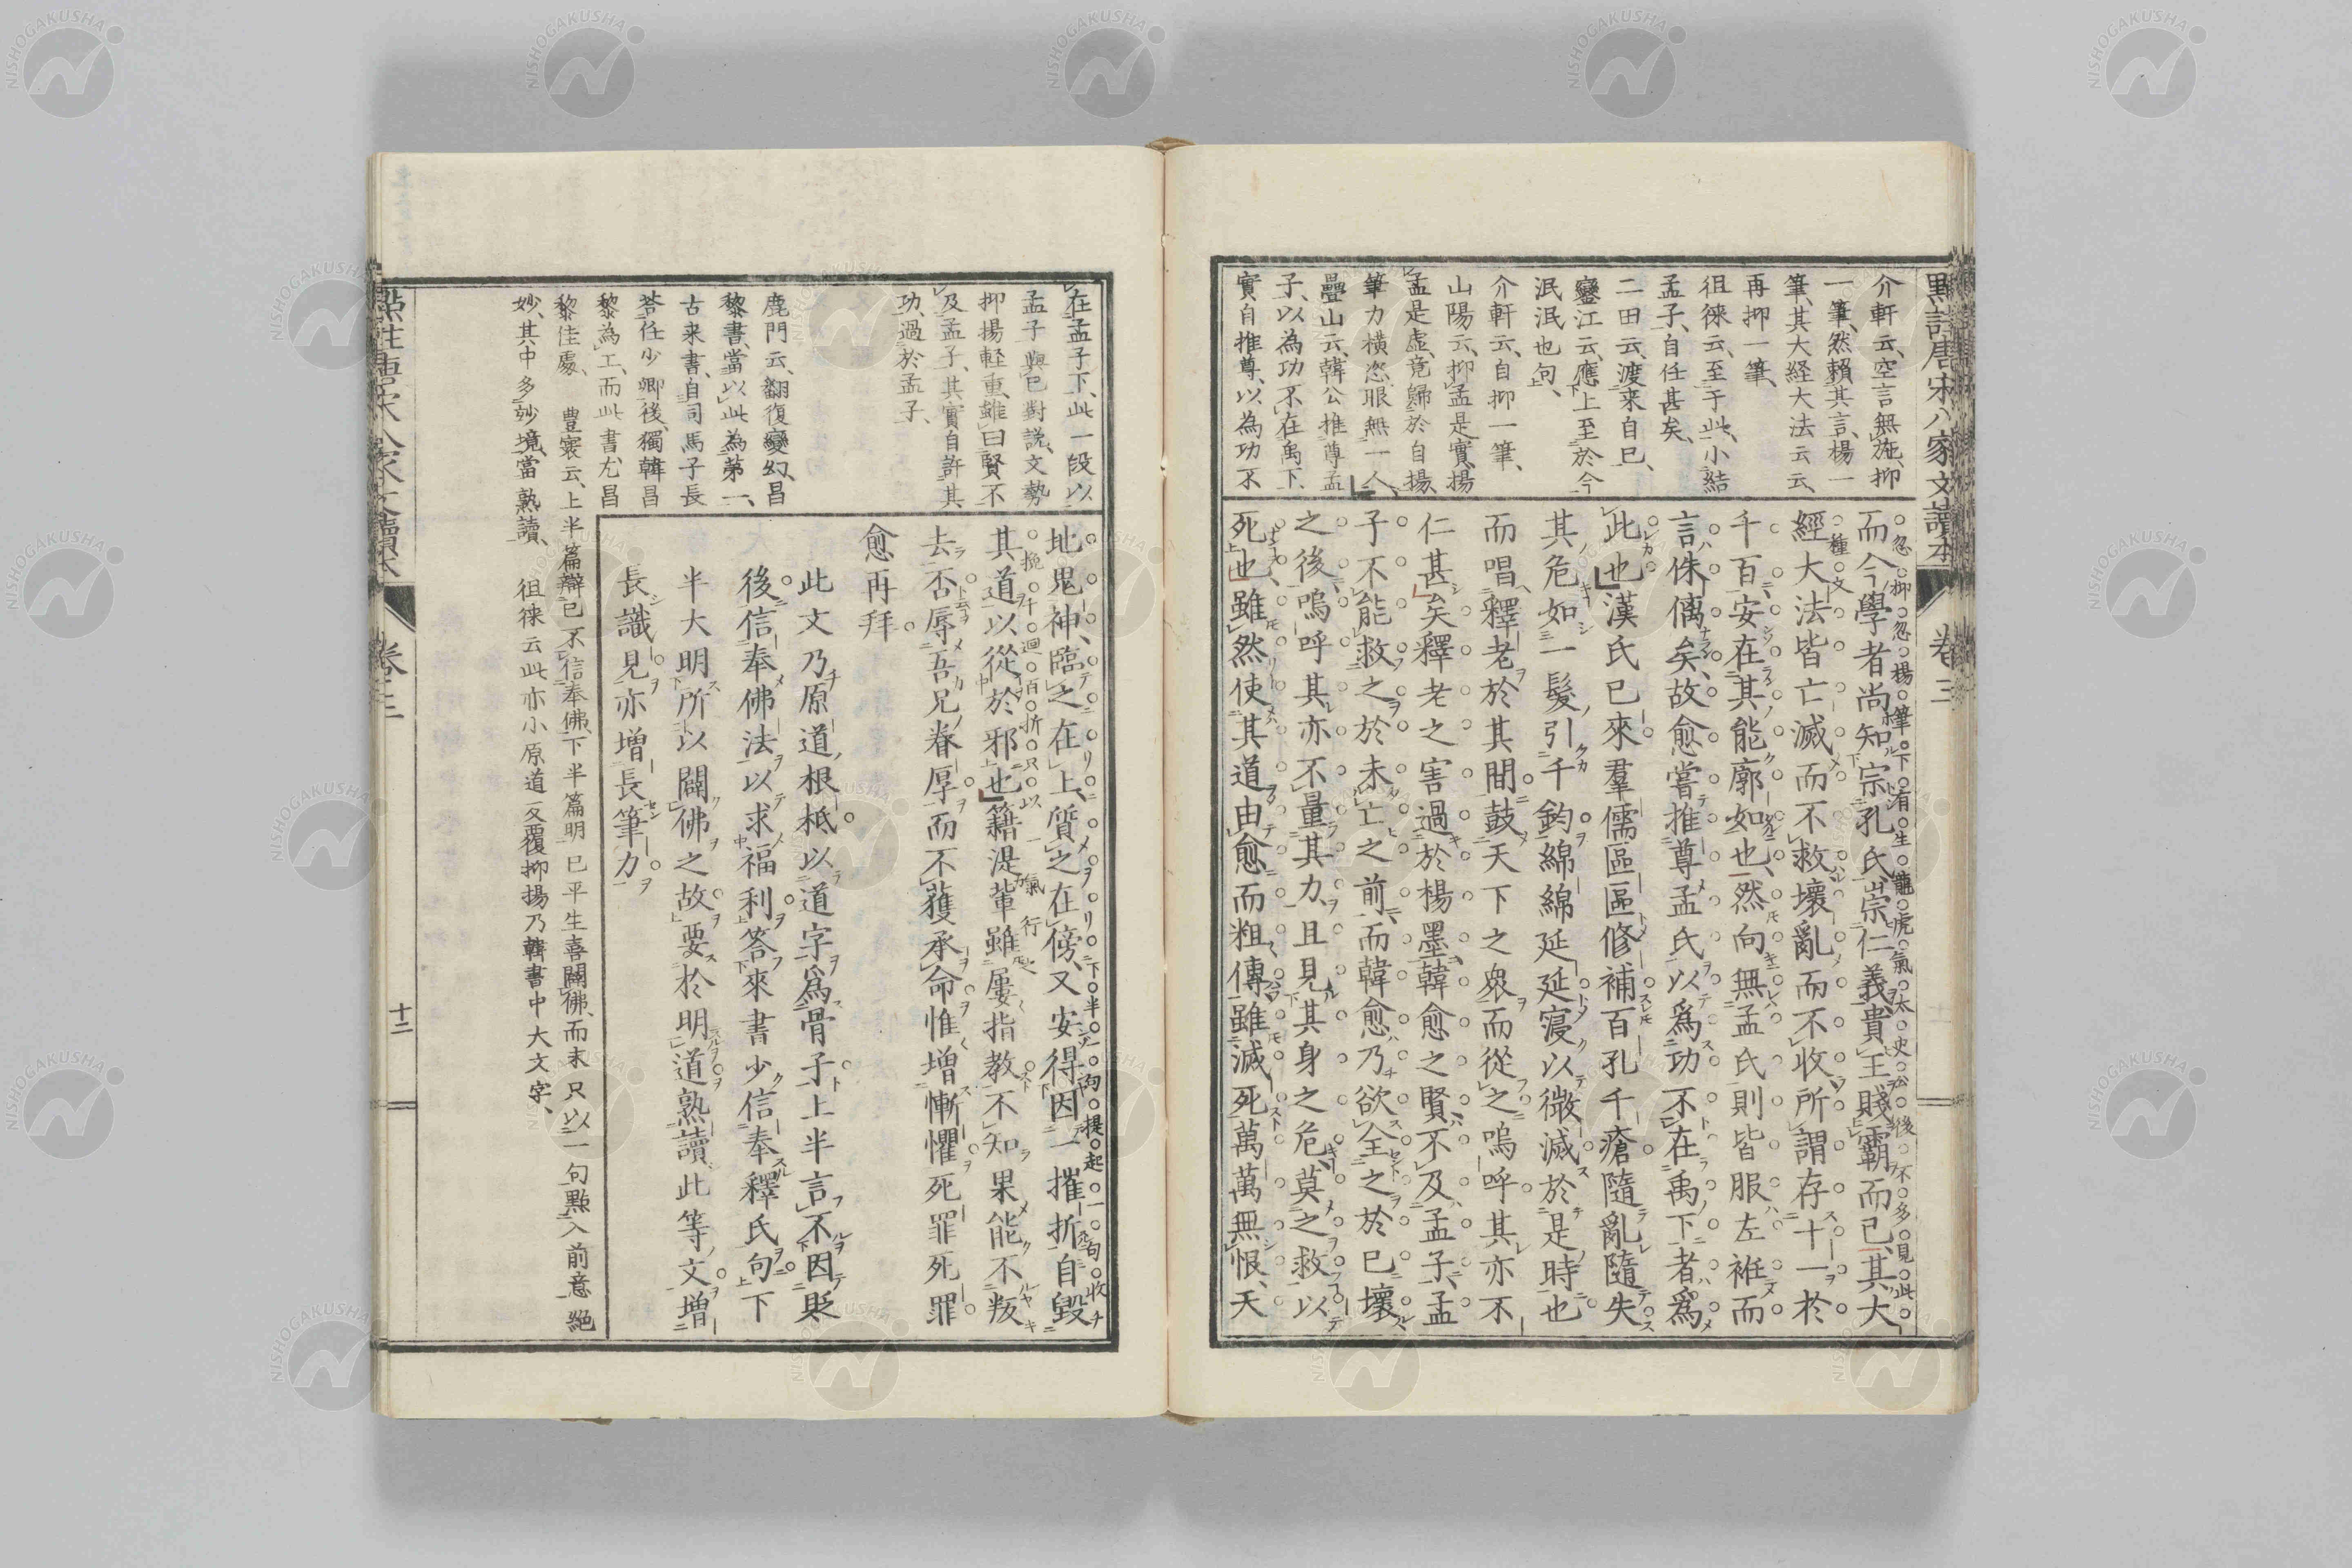 點註唐宋八家文讀本 卷三
介軒云、空言無施、抑
一筆、然賴其言、楊一
筆、其大経大法云云、
再抑一筆、
徂徠云、至于此、小結
孟子、自任甚矣、
二田云、渡来自已、
鑾江云、應上至於今
泯泯也句、
介軒云、自抑一筆、
山陽云、抑孟是實、揚
孟是虛、竟歸於自揚、
筆力橫恣、眼無一人、
疊山云、韓公推尊孟
子、以為功不在禹下、
實自推尊、以為功不
忽抑忽楊筆下有生龍虎氣太史公後不多見此
而今學者尚知宗孔氏、崇仁義、貴王賤霸而已、其大
種文
經大法皆亡滅而不救、壞亂而不收、所謂存十一於
千百、安在其能廓如也、然向無孟氏則皆服左袵而
言侏矣、故愈嘗推尊孟氏以爲功不在禹下者、爲
此也漢氏已來羣儒區區修補百孔千瘡隨亂隨失
其危如一髮引千鈞綿綿延延寖以微滅於是時也
而唱釋老於其間鼓天下之衆而從之嗚呼其亦不
仁甚矣釋老之害過於楊墨、韓愈之賢不及孟子、孟
子不能救之於未亡之前、而韓愈乃欲全之於已壞
之後、嗚呼其亦不量其力、且見其身之危、莫之救以
死也、雖然使其道由愈而粗傳、雖滅死萬萬無恨、天
在孟子下、此一段以
孟子與已對説、文勢
抑揚軽重、雖曰賢不
及孟子、其實自許其
功、過於孟子、
鹿門云、翻復變幻、昌
黎書、當以此為苐一、
古来書、自司馬子長
荅任少卿後、獨韓昌
黎為工、而此書、尤昌
黎佳處、 豊寰云、上半篇辯已不信奉佛、下半篇明已平生喜闢佛、而末只以一句點入前意絕
妙、其中多妙境、當熟讀、 徂徠云此亦小原道反覆抑揚乃韓書中大文字、
下半一句提起一句收
地鬼神、臨之在上、質之在傍、又安得因一摧折自毀
挽千迴百折只以一氣行
其道以從於邪也籍湜輩雖屢指教不知果能不叛
去否、辱吾兄眷厚而不獲承命惟增慚懼死罪死罪
愈再拜
此文乃原道根柢以道字爲骨子上半言不因貶
後信奉佛法以求福利答來書少信奉釋氏句下
半大明所以闢佛之故要於明道熟讀此等文增
長識見亦增長筆力
點註唐宋八家文讀本 卷三 十二